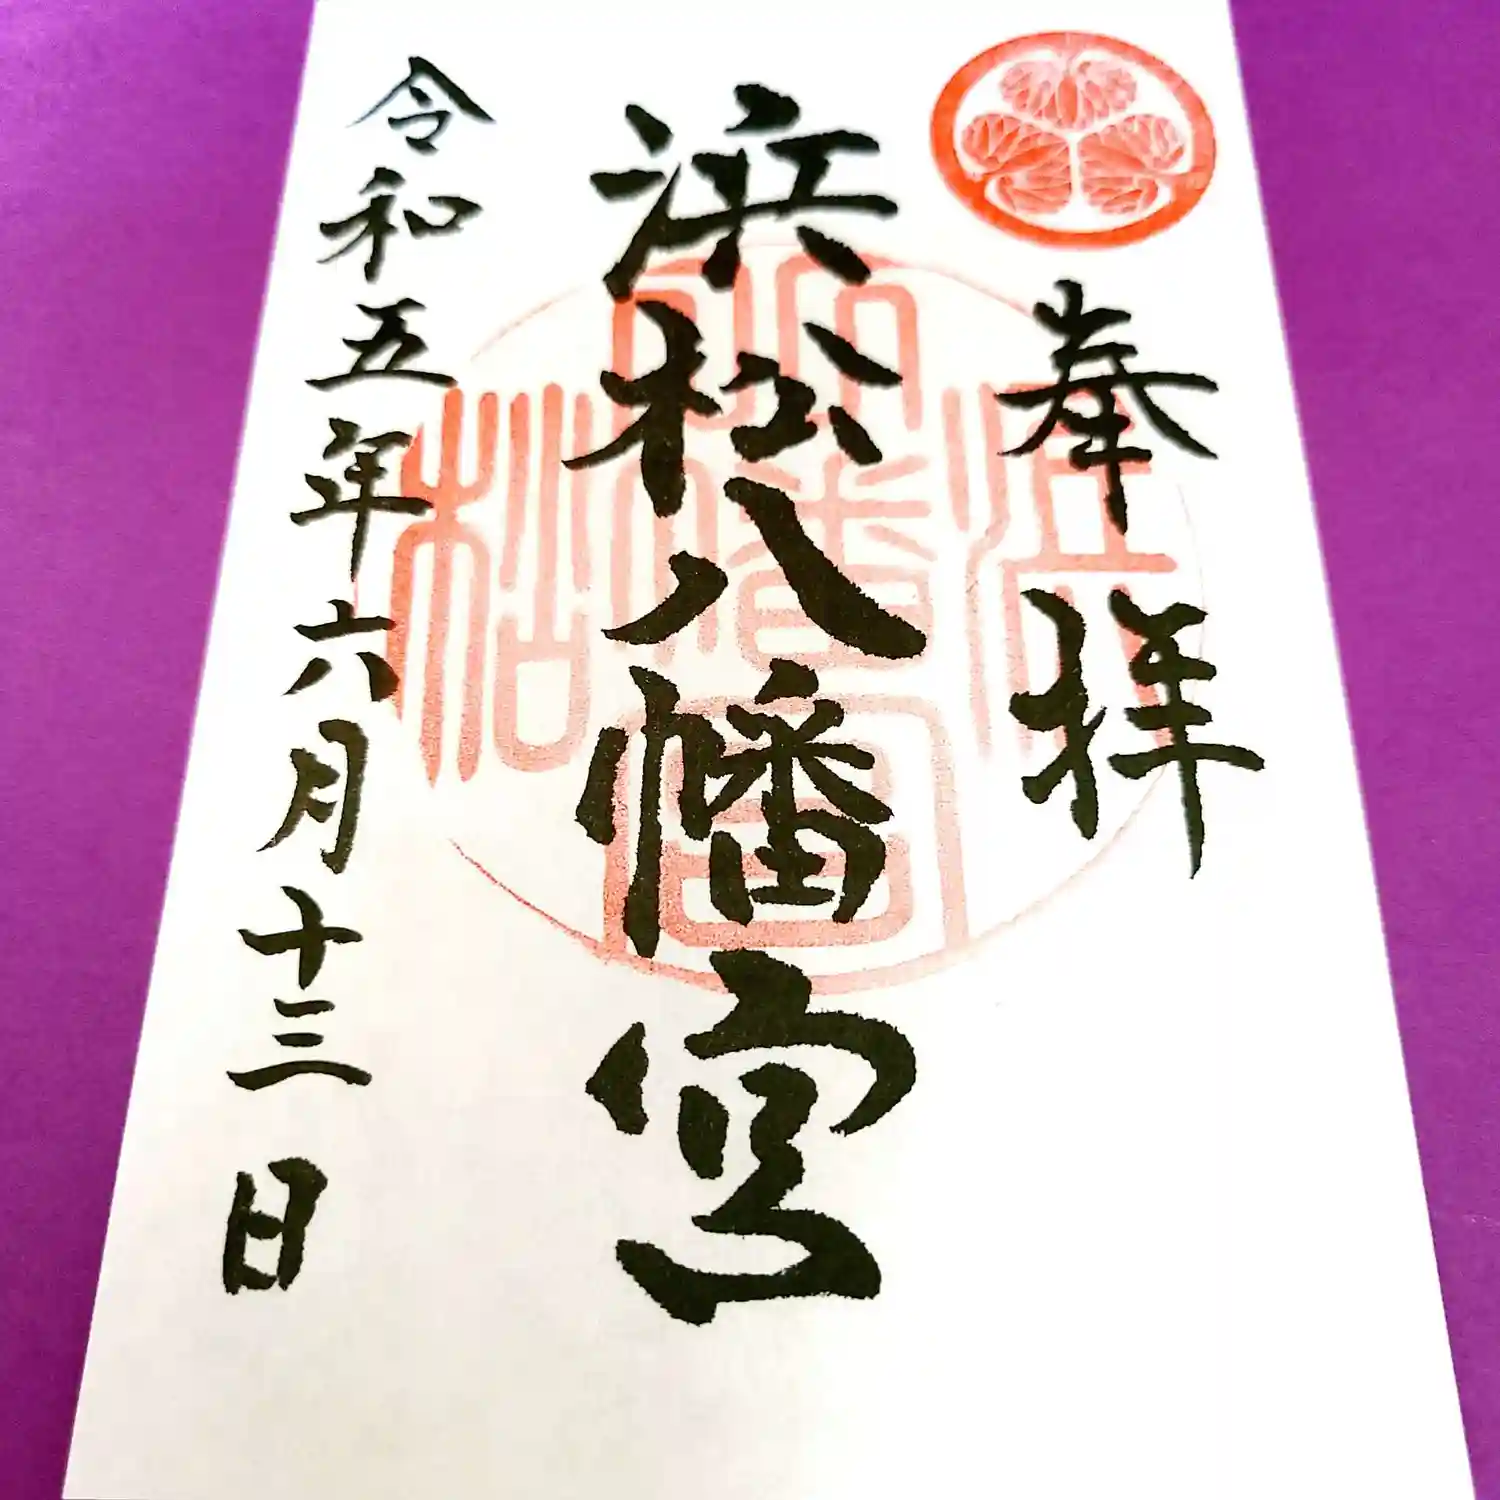 奉拝
浜松八幡宮
令和五年六月十三日
浜松八幡宮